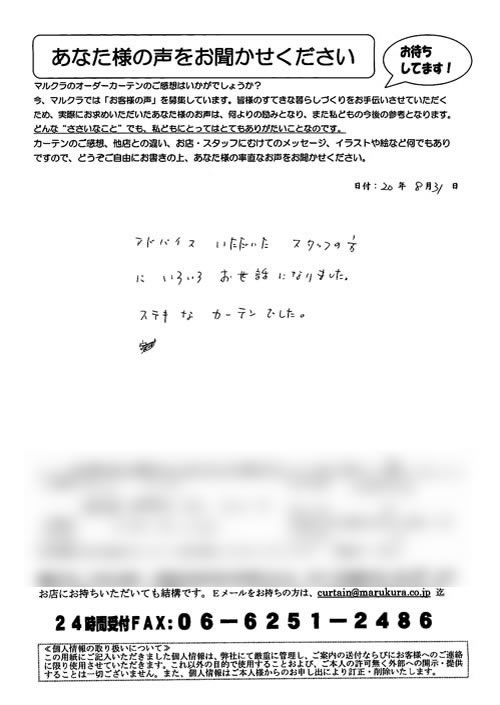 あなた様の声をお聞かせください
お待ち
してます！
マルクラのオーダーカーテンのご感想はいかがでしょうか？
今、マルクラでは「お客様の声」を募集しています。皆様のすてきな暮らしづくりをお手伝いさせていただく
ため、実際にお求めいただいたあなた様のお声は、何よりの励みとなり、また私どもの今後の参考となります。
どんな“ささいなこと”でも、私どもにとってはとてもありがたいことなのです。
カーテンのご感想、他店との違い、お店・スタッフにむけてのメッセージ、イラストや絵など何でもあり
ですので、どうぞご自由にお書きの上、あなた様の率直なお声をお聞かせください。
日付：20 年 8月31 日
アドバイス いただいた スタッフの方
に いろいろ お世話になりました。
ステキな カーテンでした。
お店にお持ちいただいても結構です。Eメールをお持ちの方は、curtain@marukura.co.jp 迄
24時間受付FAX:06-6251-2486
≪個人情報の取り扱いについて≫
この用紙にご記入いただきました個人情報は、弊社にて厳重に管理し、ご案内の送付ならびにお客様へのご連絡
に限り使用させていただきます。これ以外の目的で使用することおよび、ご本人の許可無く外部への開示・提供
することは一切ございません。また、個人情報はご本人様からのお申し出により訂正・削除いたします。